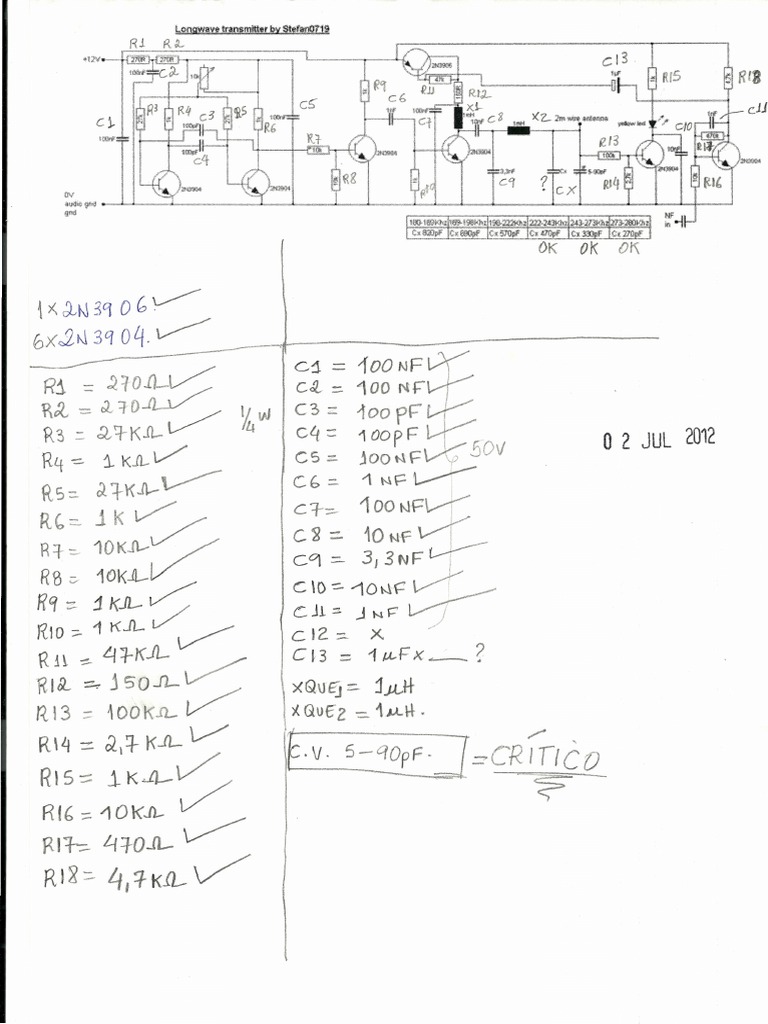 Longwave transmitter by Stefan0719
R1 R2
+12V
270R 270R
100nF C2
10k
2N3905
47k
R11
100R R12
C13
1uF
R15
1k
R18
4,7k
R9
1k
C6
1nF
R3 R4 C3 R5
27k 1k 100pF 27k 1k
R6
100pF
C4
C5
100nF
C1
100nF
R7
10k
R8
10k
2N3904
2N3904
2N3904
R10
1k
100nF
C7
X1
1mH
10nF C8
2N3904
1mH
X2 2m wire antenna
3,3nF
C9
? Cx CX
5-90pF
R13
100k
R14
2,7k
yellow led
C10
10nF
2N3904
1nF
C11
470R
R17
R16
10k
2N3904
0V
audio gnd
gnd
NF
in
180-189Khz 189-198Khz 198-222Khz 222-243Khz 243-273Khz 273-280Khz
Cx 820pF Cx 690pF Cx 570pF Cx 470pF Cx 330pF Cx 270pF
OK OK OK
1x2N3906.
6x2N3904.
R1 = 270Ω
R2 = 270Ω
R3 = 27KΩ
R4 = 1KΩ
R5= 27KΩ
R6= 1K
R7= 10KΩ
R8= 10KΩ
R9= 1KΩ
R10= 1KΩ
R11 = 47KΩ
R12 = 150Ω
R13 = 100KΩ
R14 = 2,7KΩ
R15= 1KΩ
R16= 10KΩ
R17= 470Ω
R18= 4,7KΩ
1/4 W
C1 = 100NF
C2 = 100NF
C3 = 100pF
C4 = 100pF
C5= 100NF
C6 = 1NF
C7= 100NF
C8 = 10NF
C9 = 3,3NF
C10= 10NF
C11= 1NF
C12 = X
C13 = 1µFx ?
50V
XQUE1 = 1µH
XQUE2 = 1µH.
C.V. 5-90pF. = CRÍTICO
02 JUL 2012